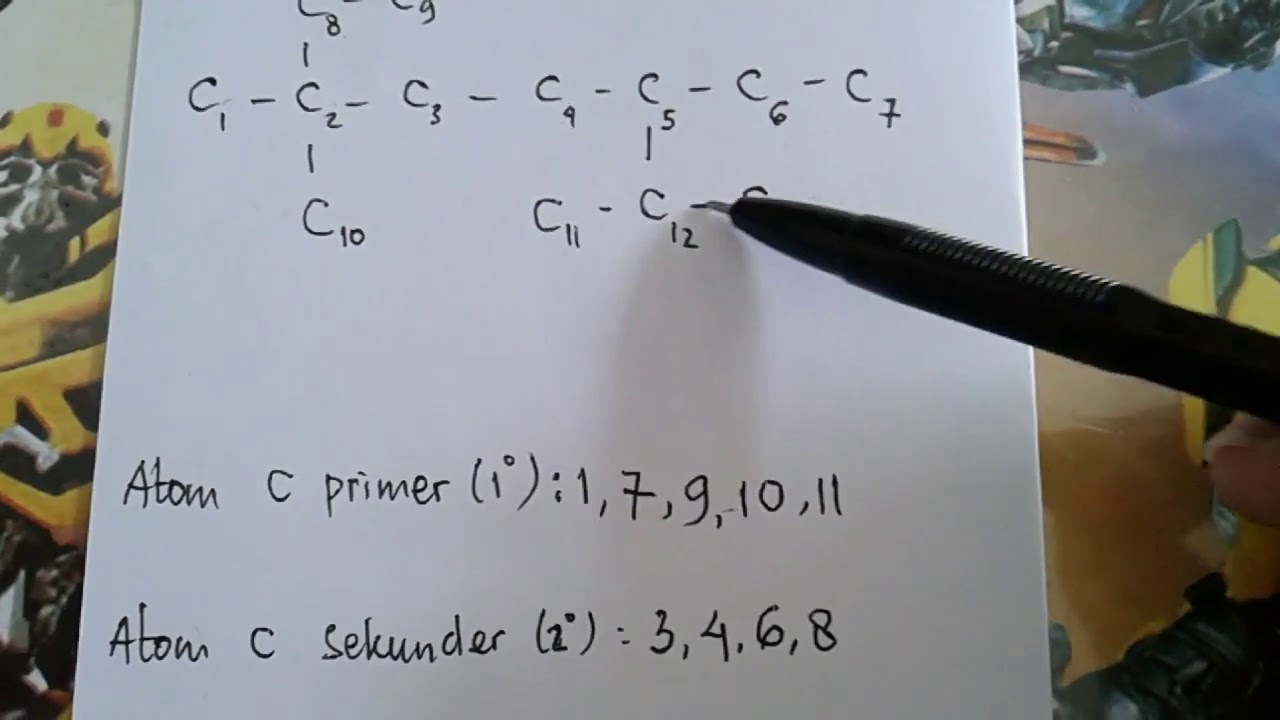 C8 - C9
C1 - C2 - C3 - C4 - C5 - C6 - C7
C10 C11 - C12 - C
Atom C primer (1°) : 1, 7, 9, 10, 11
Atom C sekunder (2°) : 3, 4, 6, 8